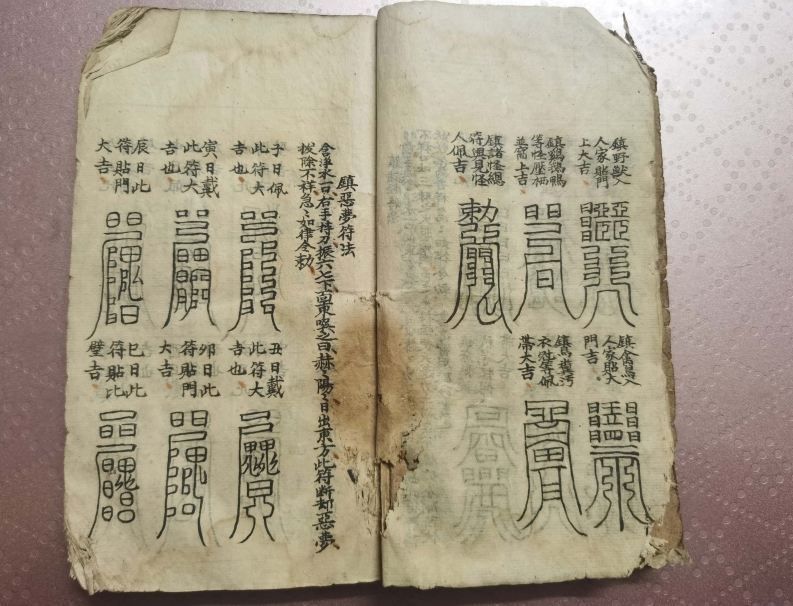 鎮野獸入
人家貼門
上大吉
鎮鵝鴨
等怪壓栖
並窩上吉
鎮諸怪總
符與見怪
人佩吉
鎮禽鳥入
人家貼大
門吉
鎮鳥糞污
衣裳等佩
帶大吉
鎮惡夢符法
含淨水一口右手持刀振六七下向東噀之曰赫〻陽〻日出東方此符断却惡夢
拔除不祥急〻如律令勅
子日佩
此符大
吉也
丑日戴
此符大
吉也
寅日戴
此符大
吉也
卯日此
符貼門
大吉
辰日此
符貼門
大吉
巳日此
符貼比
壁吉